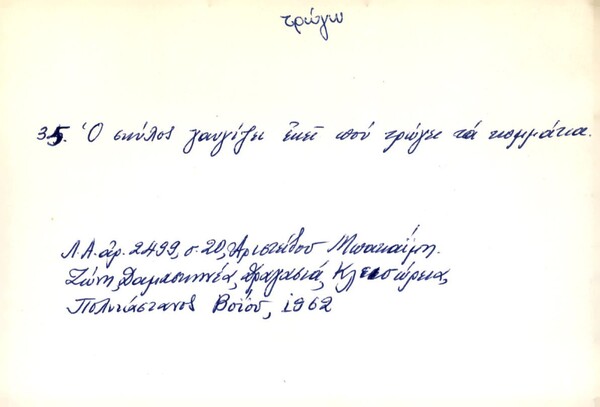 τρώγω
35. Ὁ σκύλος γαυγίζει ἐκεῖ πού τρώγει τά κομμάτια.
Λ.Α. ἀρ. 2499, σ. 20, Ἀριστείδου Μπακαΐμη.
Ζώνη, Δαμασκηνέα, Δραγασιά, Κλεισώρεια,
Πολυκάστανος Βοΐου, 1962